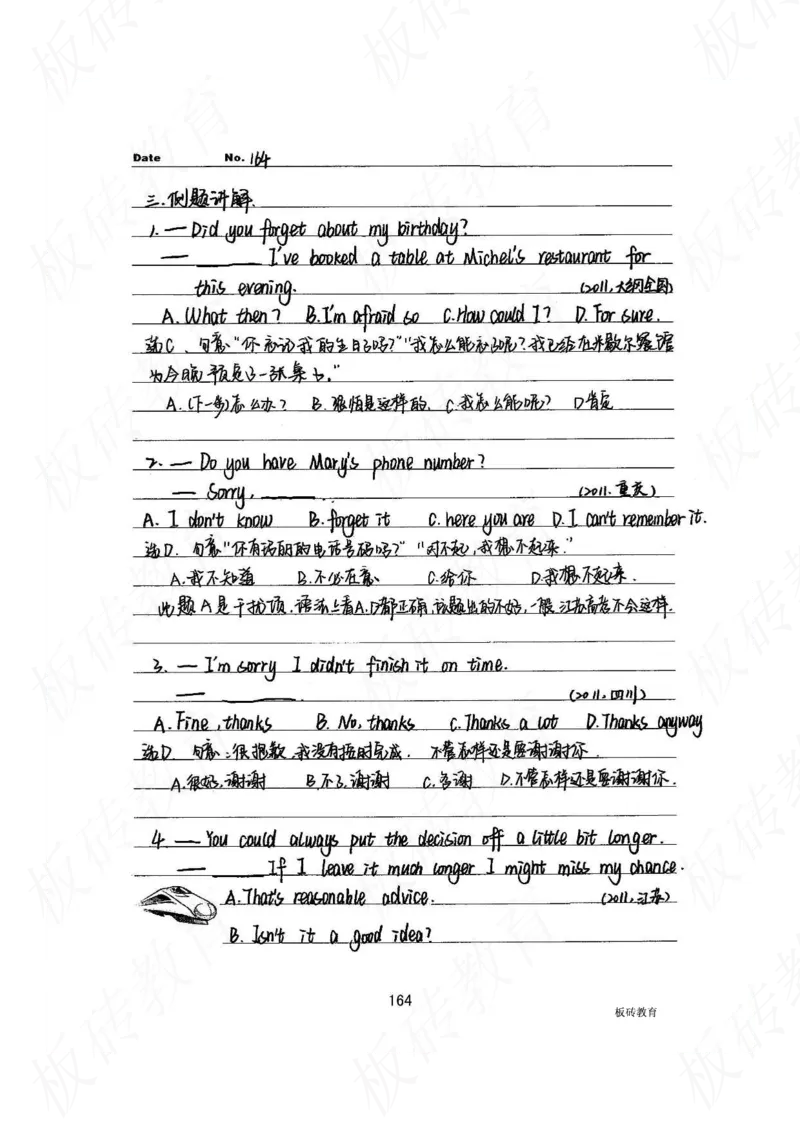 Date No. 164
三.例题讲解.
1. — Did you forget about my birthday?
— ______ I've booked a table at Michel's restaurant for
this evening. (2011,大纲全国)
A. What then? B. I'm afraid so C. How could I? D. For sure.
选C、句意"你忘记我的生日了吗?""我怎么能忘呢?我已经在米歇尔餐馆
为今晚预定了一张桌子。"
A.(下一步)怎么办? B.恐怕是这样的. C.我怎么能呢? D肯定
2. — Do you have Mary's phone number?
— Sorry, ______. (2011.重庆)
A. I don't know B. forget it C. here you are D. I can't remember it.
选D. 句意"你有玛丽的电话号码吗?" "对不起,我想不起来."
A.我不知道 B.不必在意 C.给你 D.我想不起来.
此题A是干扰项.语法上看A.D都正确,该题出的不好,一般江苏高考不会这样.
3. — I'm sorry I didn't finish it on time.
— ______. (2011.四川)
A. Fine, thanks B. No, thanks C. Thanks a lot D. Thanks anyway
选D. 句意:很抱歉,我没有按时完成. 不管怎样还是要谢谢你.
A.很好,谢谢 B.不了,谢谢 C.多谢 D.不管怎样还是要谢谢你.
4 — You could always put the decision off a little bit longer.
— ______ If I leave it much longer I might miss my chance.
A. That's reasonable advice. (2011,江苏)
B. Isn't it a good idea?
164
板砖教育